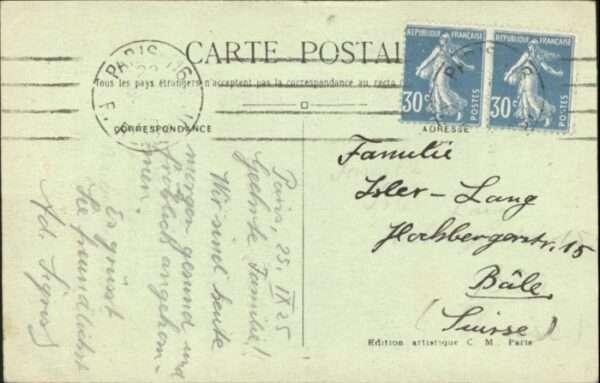 CARTE POSTALE
Tous les pays étrangers n'acceptent pas la correspondance au recto
CORRESPONDANCE
ADRESSE
PARIS
RÉPUBLIQUE FRANÇAISE
30c
POSTES
RÉPUBLIQUE FRANÇAISE
30c
POSTES
Paris, 25. IX 25
Geehrte Familie!
Wir sind heute
morgen gesund und
fröhlich angekom-
men.
Es grüsst
Sie freundlichst
Ad.
Familie
Isler-Lang
Hochbergerstr. 15
Bâle
(Suisse)
Edition artistique C. M. Paris